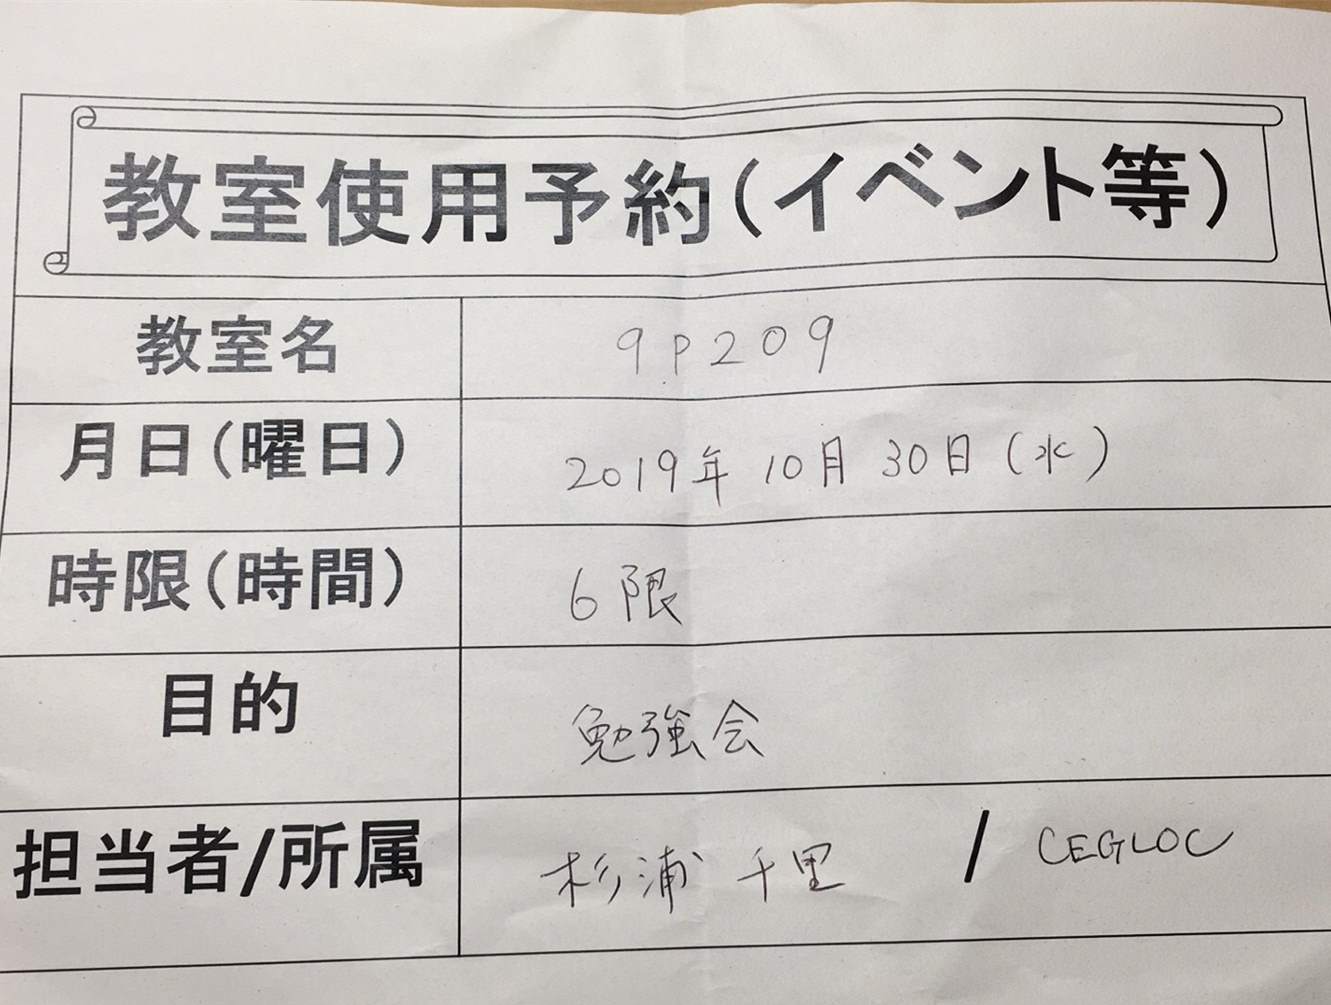 教室使用予約(イベント等)
教室名 9P209
月日(曜日) 2019年 10月 30日(水)
時限(時間) 6限
目的 勉強会
担当者/所属 杉浦 千里 / CEGLOC